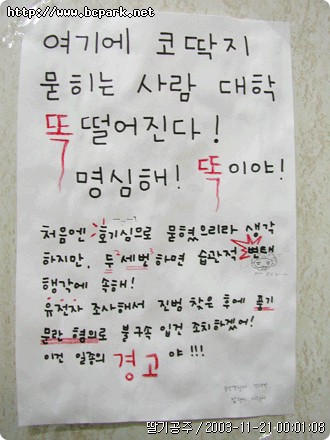 http://www.bcpark.net
여기에 코딱지
묻히는 사람 대학
똑 떨어진다!
명심해! 똑이야!
처음엔 호기심으로 묻혔으리라 생각
하지만, 두 세번 하면 습관적 변태
행각에 속해!
유전자 조사해서 진범 찾은 후에 풍기
문란 혐의로 불구속 입건 조치하겠어!
이건 일종의 경고야!!!
딸기공주 / 2003-11-21 00:01:08